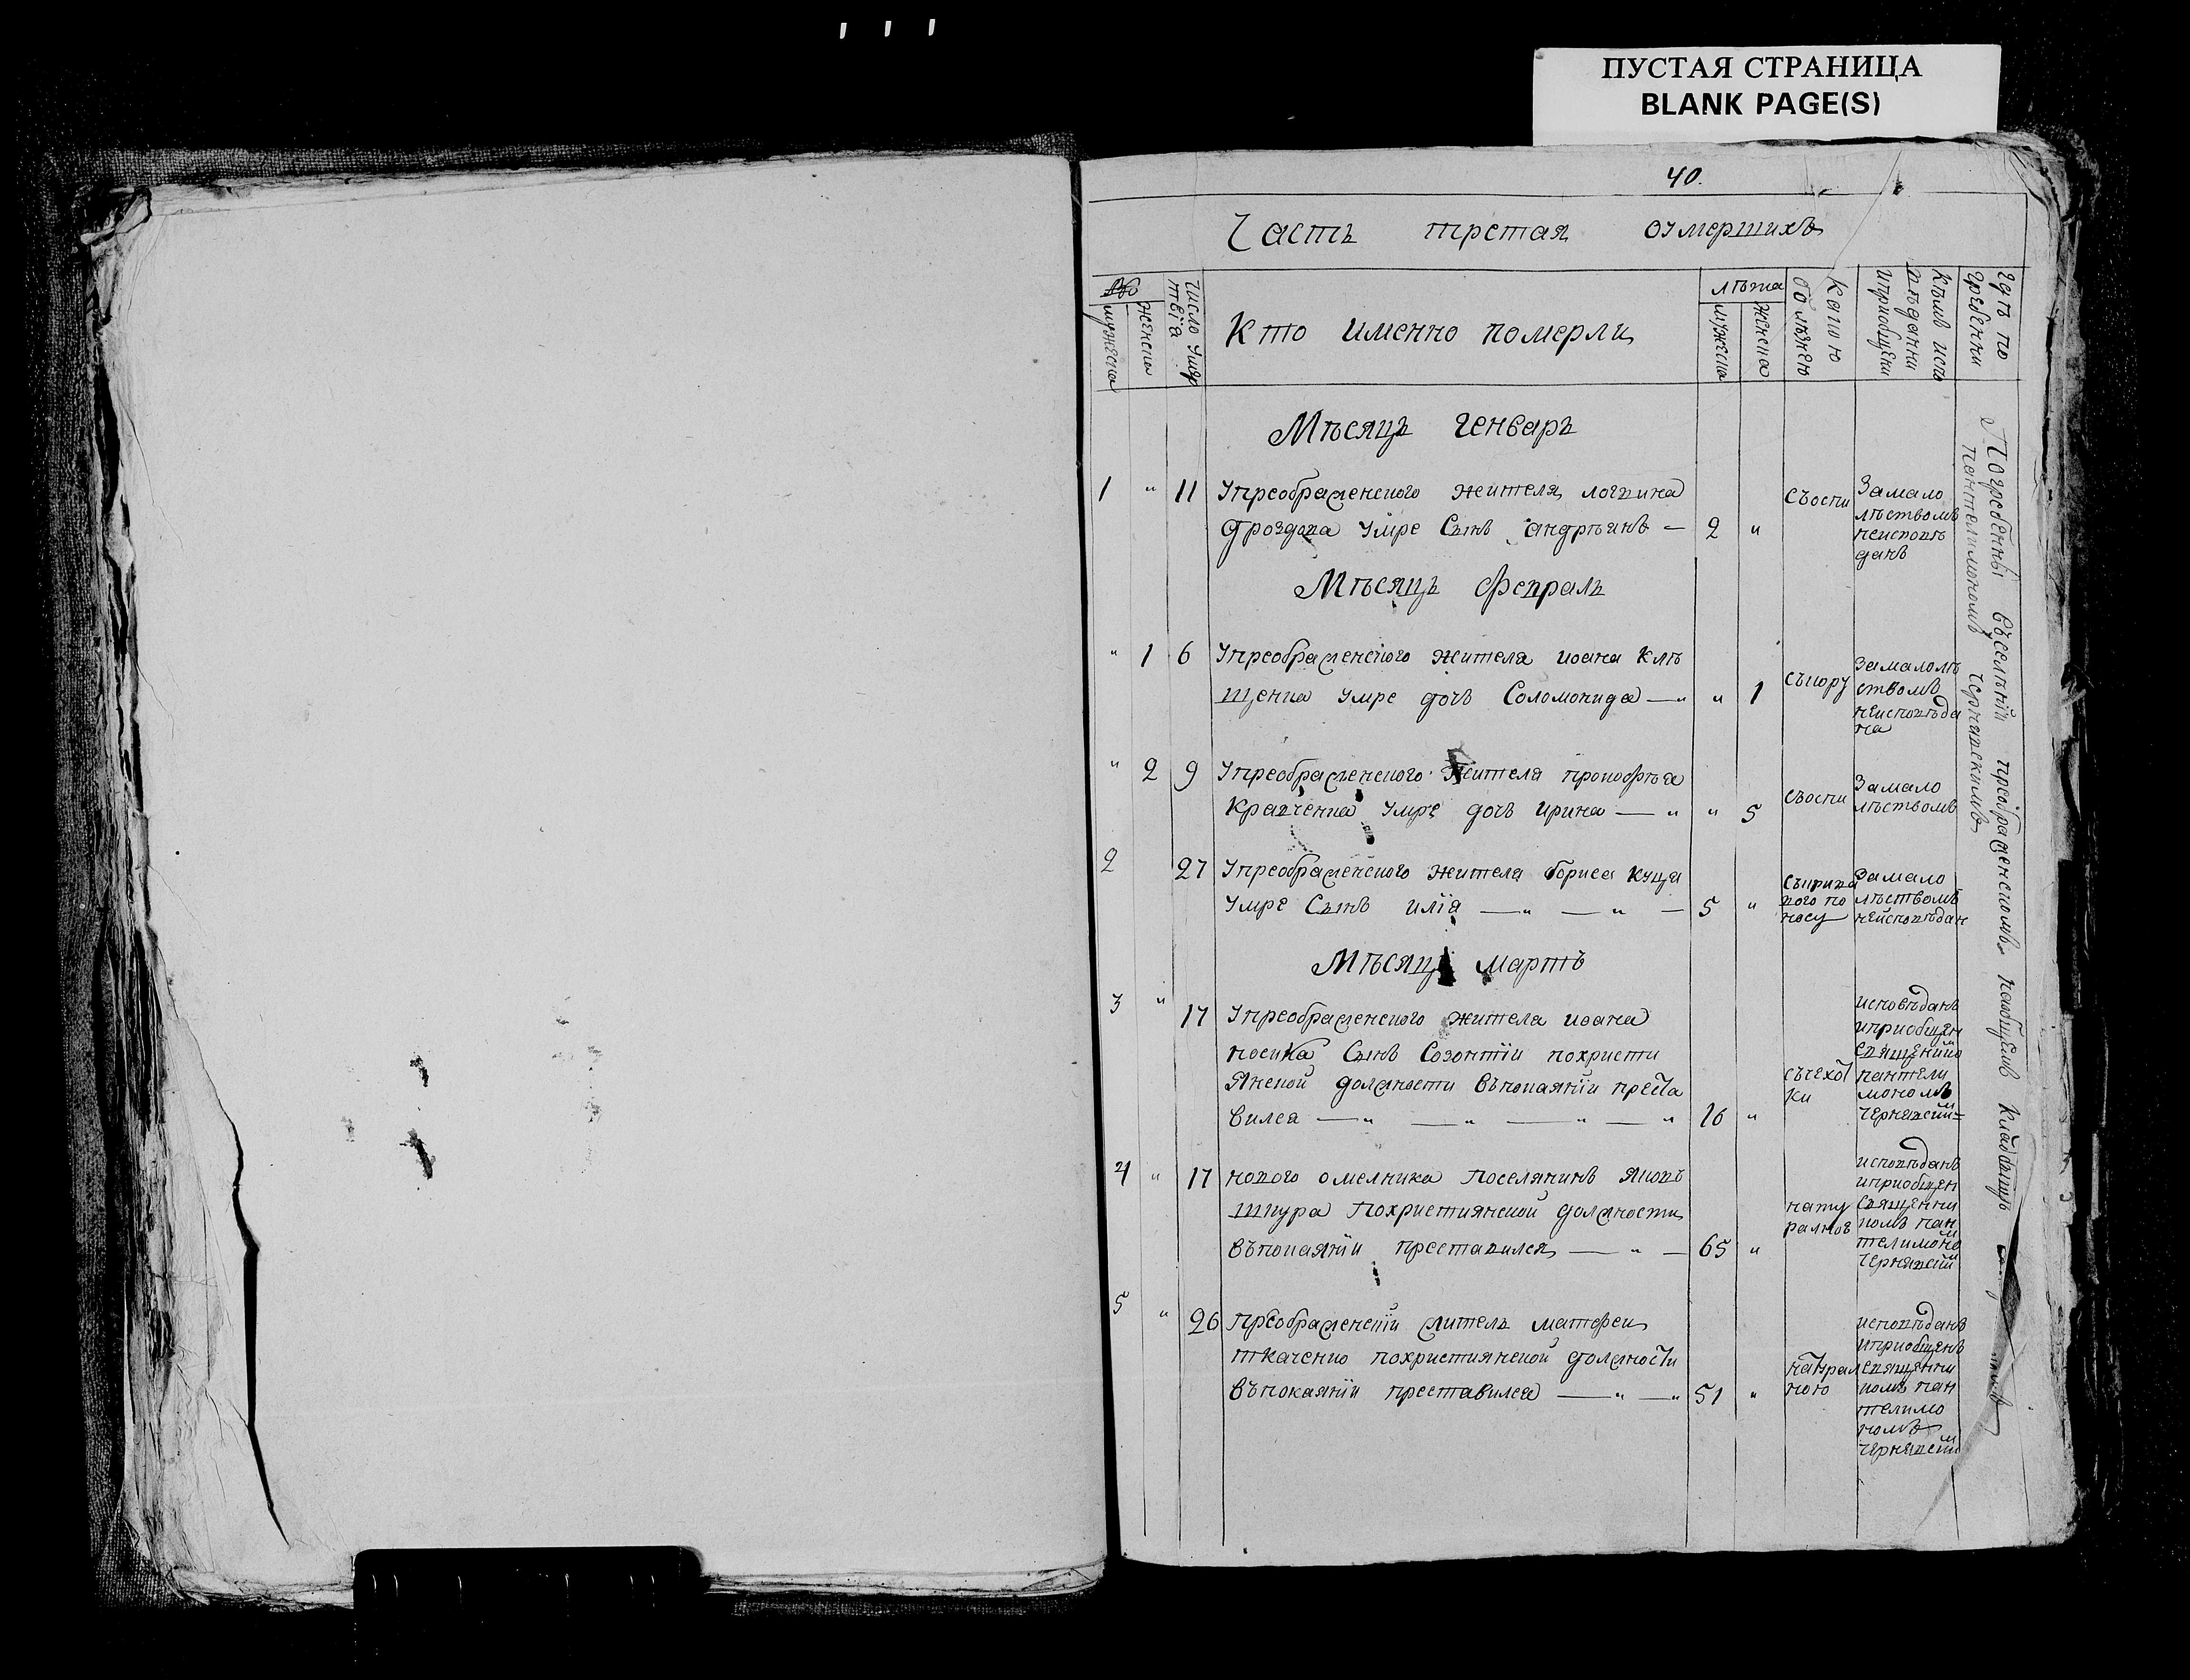 ПУСТАЯ СТРАНИЦА
BLANK PAGE(S)
40.
Часть третая оумершихъ
№
мужеска
женска
число умер
твїа
Кто именно померли
лѣта
мужеска
женска
Какою
болѣзнею
Кѣмъ испо
вѣданы
ипріобщены
Гдѣ по
гребенны
Мѣсяцъ генварь
1 " 11 Упреображенского жителя логвина
дроздова умре Сынъ андрѣинъ — 2 "
Съоспи
Замало
лѣтствомъ
неисповѣ
данъ
Мѣсяцъ февраль
" 1 6 Упреображенского жителя иоана Клѣ
щенка умре дочь Соломонида — " " 1
Съкору
Замалолѣ
ствомъ
неисповѣда
на
" 2 9 Упреображенского жителя прокофѣя
Кравченка умре дочь ирина — " " 5
Съоспи
Замало
лѣтствомъ
2 27 Упреображенского жителя бориса куца
умре Сынъ илїя — " — " — 5 "
Съкрива
вого по
носу
Замало
лѣтствомъ
неисповѣдан
Мѣсяцъ мартъ
3 " 17 Упреображенского жителя иоана
носика Сынъ Созонтїи похристи
янской должности въпокаянїи преста
вился — " — " — " — " 16 "
Съчехот
ки
исповѣданъ
ипріобщен
священико
пантели
мономъ
чернявски=
4 " 17 нового омелника Поселянинъ яковъ
шкура Похристиянской должности
въпокаянїи преставился — " — 65 "
нату
ралное
исповѣданъ
ипріобщен
священни
комъ пан
телимоно
чернявски
5 " 26 преображенскїи житель матфеи
ткаченко похристиянской должности
въпокаянїи преставился — " — " 51 "
натрал
ною
исповѣданъ
ипріобщенъ
священни
комъ пан
телимо
номъ
чернявски
Погребенны въселенїи преображенскомъ наобщемъ кладбищѣ
пентелимономъ чернявскимъ